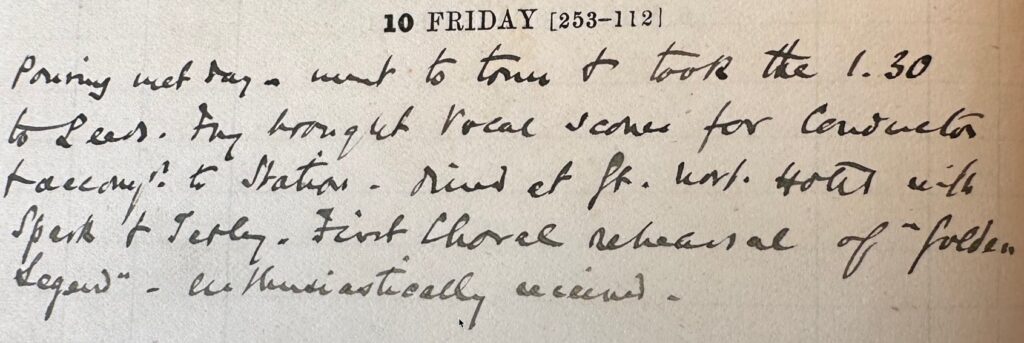 10 FRIDAY [253–112]
Pouring wet day – went to town & took the 1.30
to Leeds. Fry brought Vocal scores for Conductor
& accompt. to Station – dined at Gt. Nort. Hotel with
Spark & Tetley. First Choral rehearsal of "Golden
Legend" – enthusiastically received –